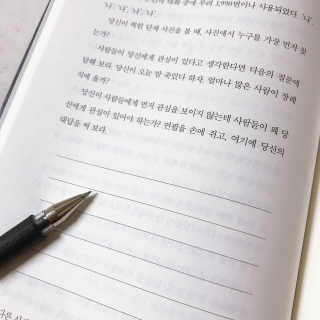 대화 중에 무려 1,990번이나 사용되었다. '나',
'나', '나', '나', '나'.
당신이 찍힌 단체 사진을 볼 때, 사진에서 누구를 가장 먼저 찾
는가?
사람들이 당신에게 관심이 있다고 생각한다면 다음의 질문에
답해 보라. 당신이 오늘 밤 죽었다 하자. 얼마나 많은 사람이 장례
식에 올까?
당신이 사람들에게 먼저 관심을 보이지 않는데 사람들이 왜 당
신에게 관심이 있어야 하는가? 연필을 손에 쥐고, 여기에 당신의
대답을 써 보라.